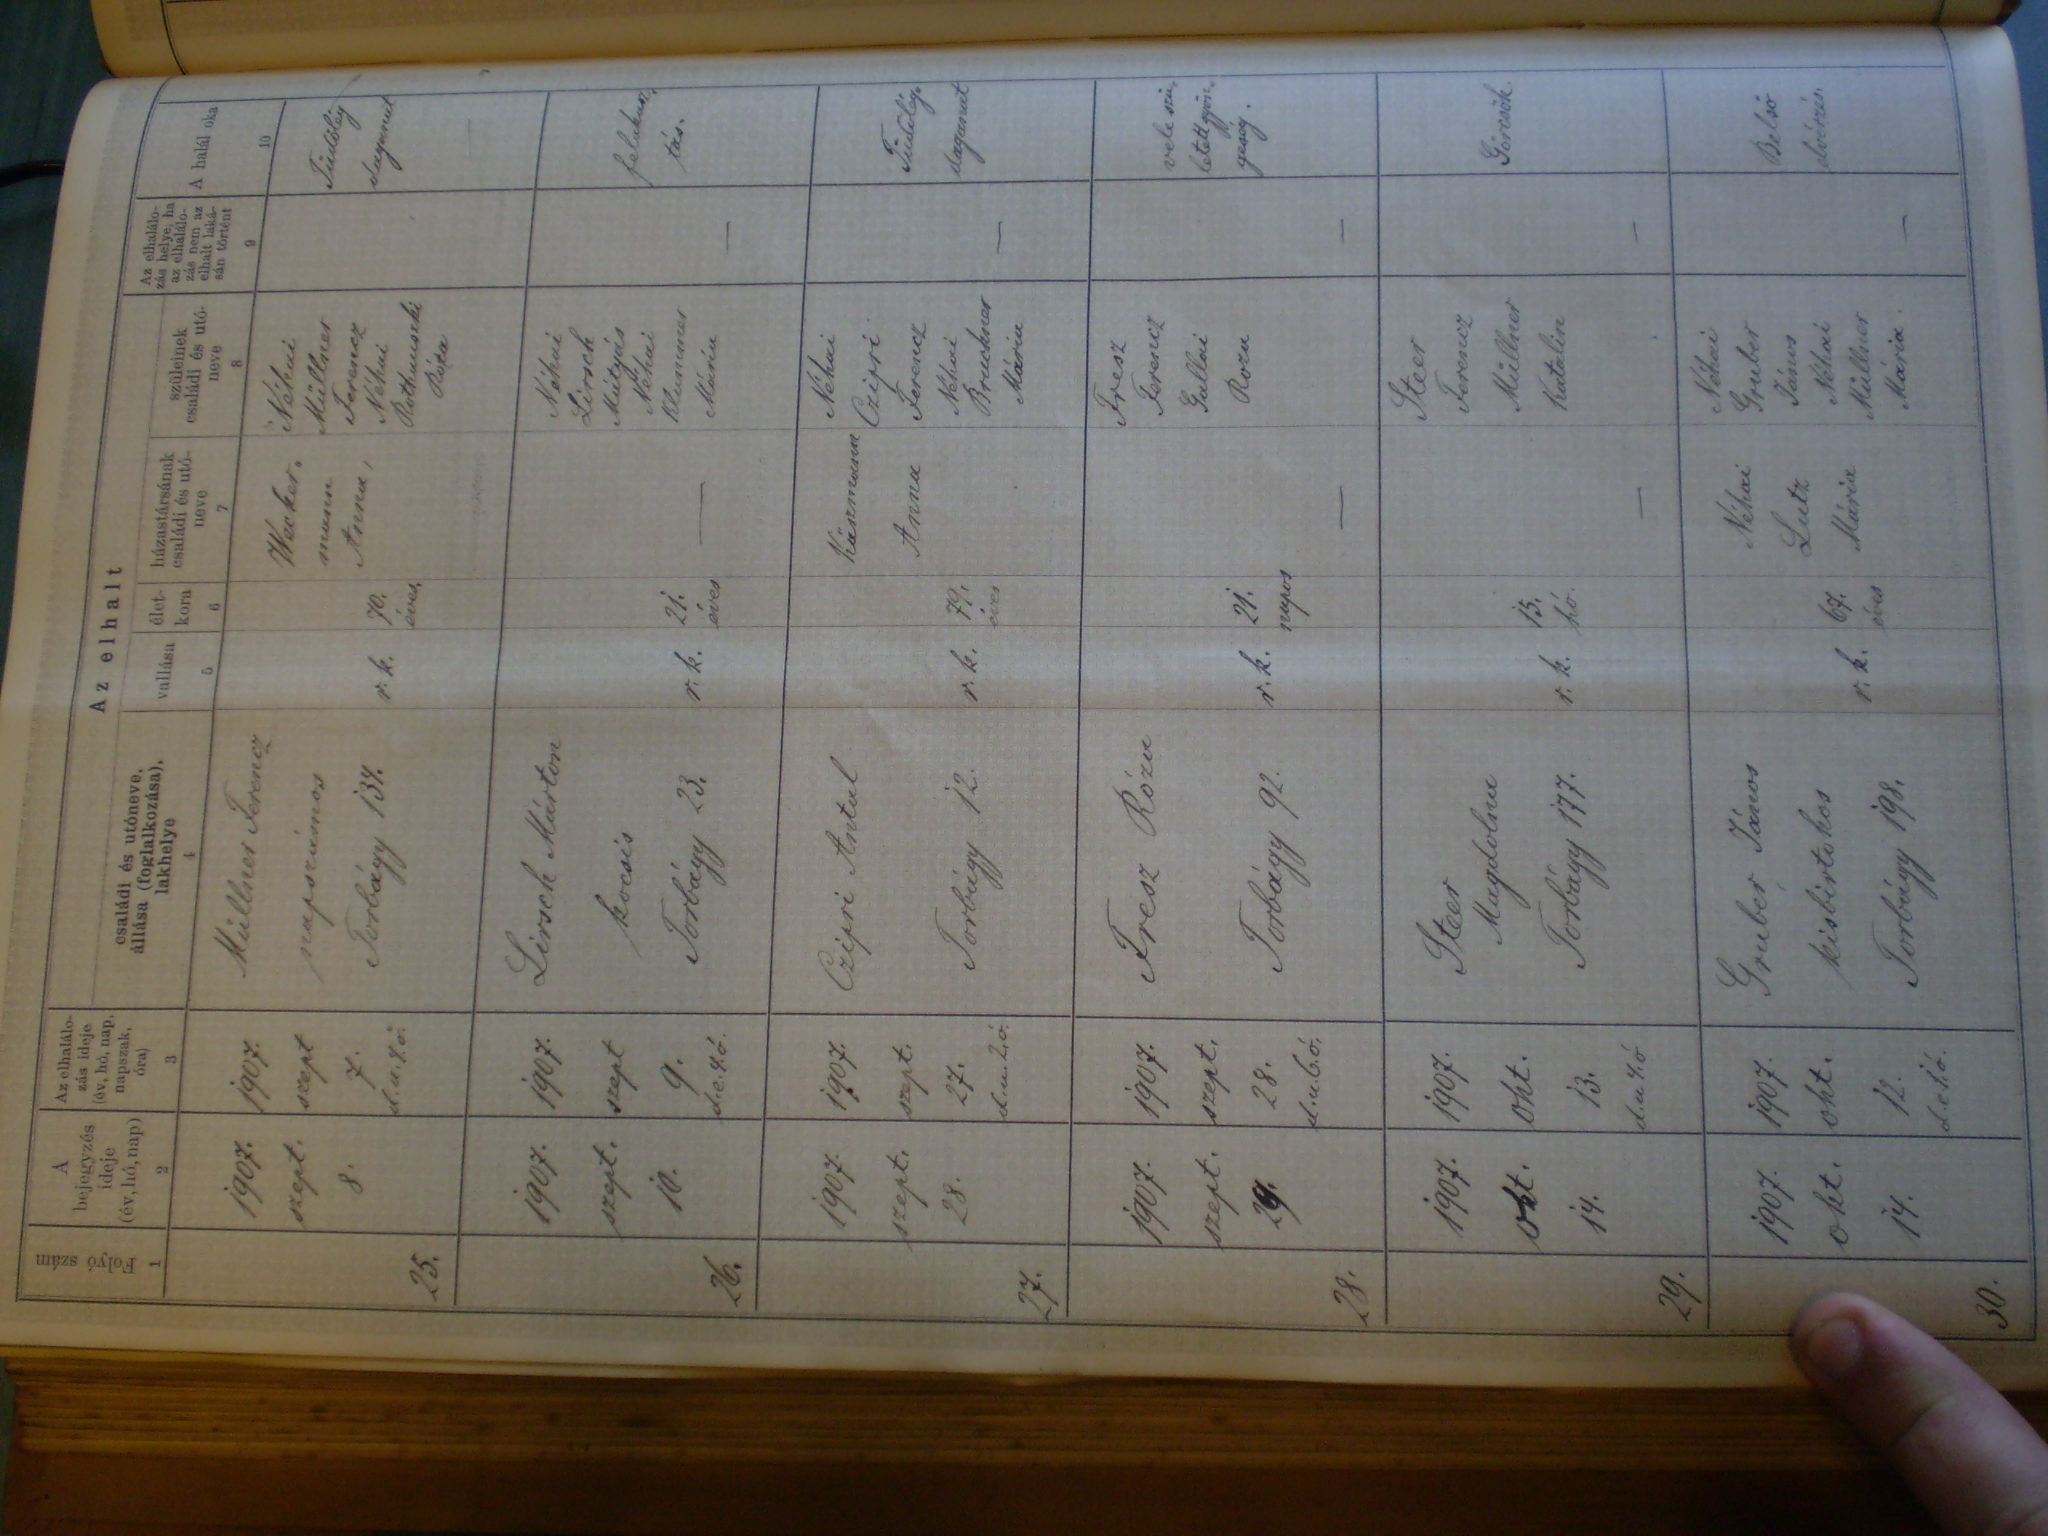 Az elhalt
Folyó szám
A bejegyzés ideje (év, hó, nap)
Az elhalálo-
zás ideje
(év, hó, nap,
napszak,
óra)
családi és utóneve,
állása (foglalkozása),
lakhelye
vallása
élet-
kora
házastársának
családi és utó-
neve
szüleinek
családi és utó-
neve
Az elhalálo-
zás helye, ha
az elhalálo-
zás nem az
elhalt laká-
sán történt
A halál oka
1 2 3 4 5 6 7 8 9 10
25.
1907.
szept.
8.
1907.
szept
7.
d.u.
Müllner Ferencz
napszámos
Torbágy 134.
r. k.
70.
éves,
Wecker-
mann
Anna,
Néhai
Müllner
Ferencz
Néhai
Tüdőlég
daganat
26.
1907.
szept.
10.
1907.
szept
9.
d.e.
Lirsch Márton
kocsis
Torbágy 23.
r. k.
21.
éves
—
Néhai
Lirsch
Mátyás
Néhai
Klummer
Mária
—
felakasz-
tás.
27.
1907
szept.
28.
1907.
szept.
27.
d.u. 2. ó.
Czipri Antal
Torbágy 12.
r. k.
79.
éves
Anna
Néhai
Czipri
Ferencz
Néhai
Bruckner
Mária
—
Tüdőlég-
daganat
28.
1907.
szept.
29.
1907.
szept.
28.
d.u. 6. ó.
Fresz Róza
Torbágy 92.
r. k.
21.
napos
—
Fresz
Ferencz
Gallai
Roza
—
vele szü-
letett gyön-
geség.
29.
1907.
okt.
14.
1907.
okt.
13.
d.u. ó
Steer
Magdolna
Torbágy 177.
r. k.
13.
hó.
—
Steer
Ferencz
Müllner
Katalin
—
Görcsök.
30.
1907.
okt.
14.
1907.
okt.
12.
d.e. ó.
Gruber János
kisbirtokos
Torbágy 198.
r. k.
67.
éves
Néhai
Lutz
Mária
Néhai
Gruber
János
Néhai
Müllner
Mária.
—
Belső
elvérzés.